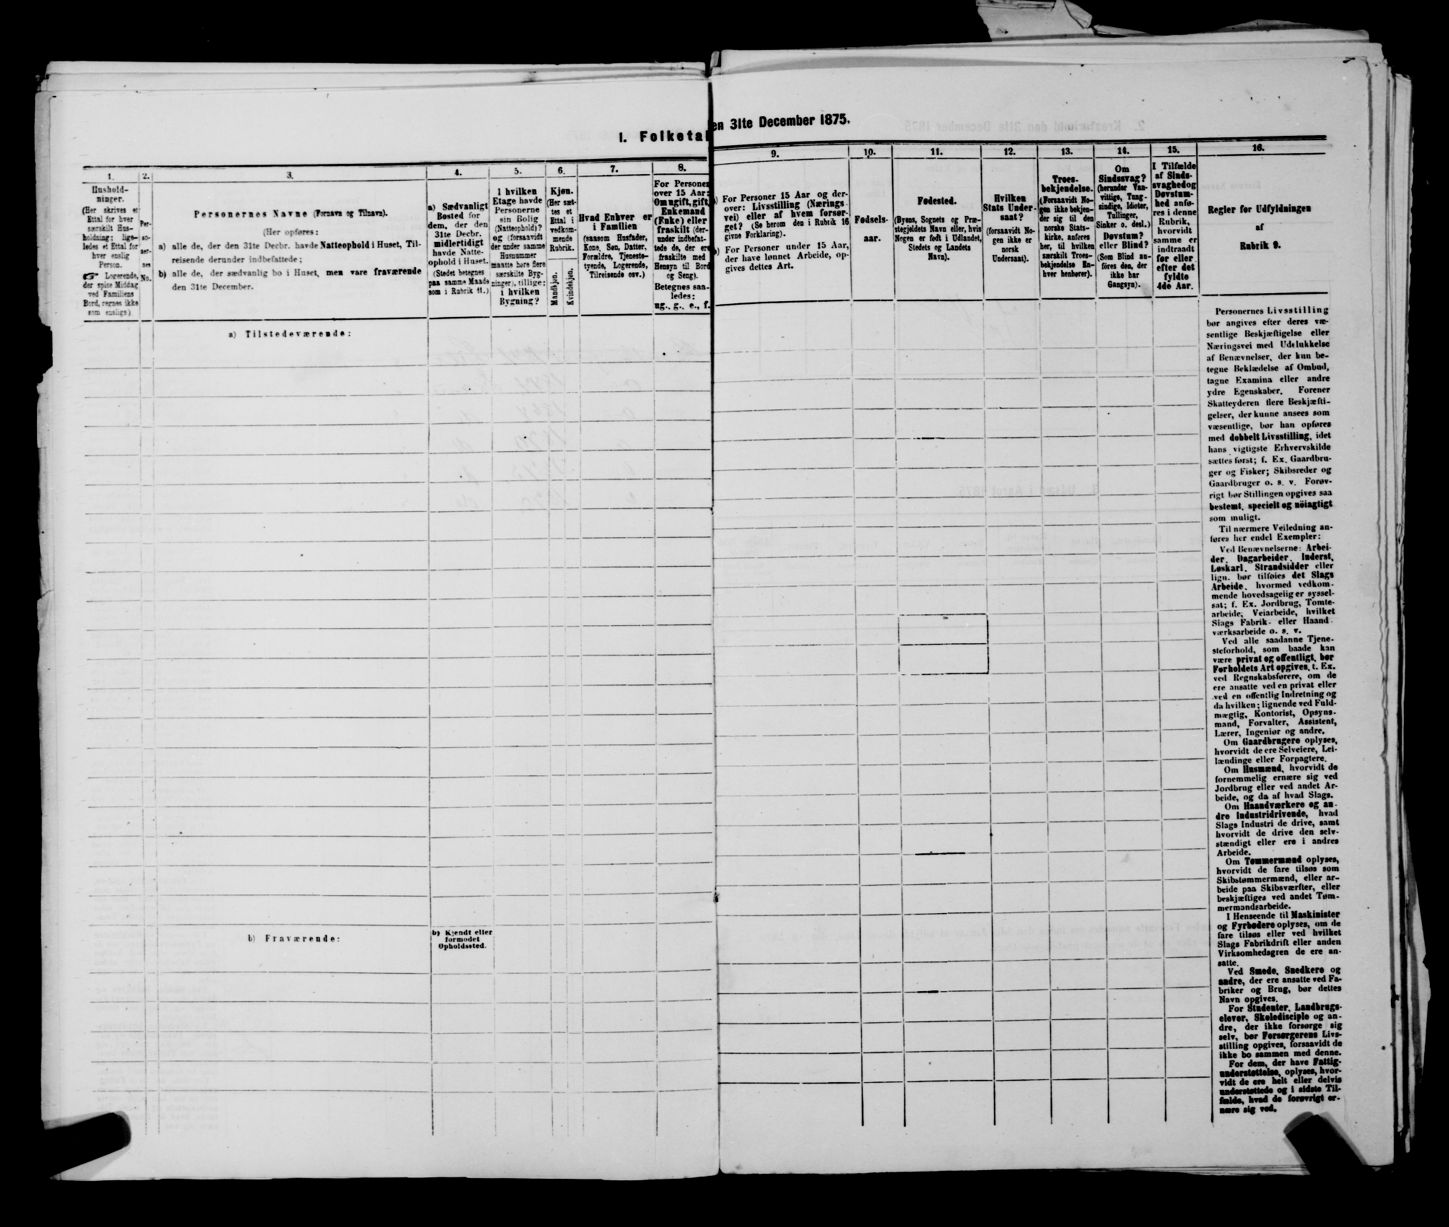 I. Folketal
en 31te December 1875.
1.
Hushold-
ninger.
(Her skrives et
Ettal for hver
særskilt Hus-
holdning; lige-
ledes et Ettal for
hver enslig
Person.
☞ Logerende,
der spise Middag
ved Familiens
Bord, regnes ikke
som enslige.)
2.
Per-
so-
ner-
nes
No.
3.
Personernes Navne (Fornavn og Tilnavn).
(Her opføres:
a) alle de, der den 31te Decbr. havde Natteophold i Huset, Til-
reisende derunder indbefattede;
b) alle de, der sædvanlig bo i Huset, men vare fraværende
den 31te December.
4.
a) Sædvanligt
Bosted for
dem, der den
31te Decbr.
midlertidigt
havde Natte-
ophold i Huset.
(Stedet betegnes
paa samme Maade
som i Rubrik 11.)
5.
I hvilken
Etage havde
Personerne
sin Bolig
(Natteophold)?
og (forsaavidt
der under samme
Husnummer
maatte høre flere
særskilte Byg-
ninger), tillige:
i hvilken
Bygning?
6.
Kjøn.
(Her sæt-
tes et
Ettal i
vedkom-
mende
Rubrik.)
Mandkjøn.
Kvindekjøn.
7.
Hvad Enhver er
i Familien
(saasom Husfader,
Kone, Søn, Datter,
Forældre, Tjeneste-
tyende, Logerende,
Tilreisende osv.)
8.
For Personer
over 15 Aar:
Om ugift, gift,
Enkemand
(Enke) eller
fraskilt (der-
under indbefat-
tede de, der ere
fraskilte med
Hensyn til Bord
og Seng).
Betegnes saa-
ledes:
ug., g., e., f.
9.
a) For Personer 15 Aar og der-
over: Livsstilling (Nærings-
vei) eller af hvem forsør-
get? (Se herom den i Rubrik 16
givne Forklaring).
b) For Personer under 15 Aar,
der have lønnet Arbeide, op-
gives dettes Art.
10.
Fødsels-
aar.
11.
Fødested.
(Byens, Sognets og Præ-
stegjeldets Navn eller, hvis
Nogen er født i Udlandet,
Stedets og Landets
Navn).
12.
Hvilken
Stats Under-
saat?
(forsaavidt No-
gen ikke er
norsk
Undersaat).
13.
Troes-
bekjendelse.
(Forsaavidt No-
gen ikke bekjen-
der sig til den
norske Stats-
kirke, anføres
her, til hvilken
særskilt Troes-
bekjendelse En-
hver henhører).
14.
Om
Sindssvag?
(herunder Van-
vittige, Tung-
sindige, Idioter,
Tullinger,
Sinker o. desl.)
Døvstum?
eller Blind?
(Som Blind an-
føres den, der
ikke har
Gangsyn).
15.
I Tilfælde
af Sinds-
svaghed og
Døvstum-
hed anfø-
res i denne
Rubrik,
hvorvidt
samme er
indtraadt
før eller
efter det
fyldte
4de Aar.
16.
Regler for Udfyldningen
af
Rubrik 9.
a) Tilstedeværende:
b) Fraværende:
b) Kjendt eller
formodet
Opholdssted.
Personernes Livsstilling
bør angives efter deres væ-
sentlige Beskjæftigelse eller
Næringsvei med Udelukkelse
af Benævnelser, der kun be-
tegne Beklædelse af Ombud,
tagne Examina eller andre
ydre Egenskaber. Forener
Skatteyderen flere Beskjæfti-
gelser, der kunne ansees som
væsentlige, bør han opføres
med dobbelt Livsstilling, idet
hans vigtigste Erhvervskilde
sættes først; f. Ex. Gaardbru-
ger og Fisker; Skibsreder og
Gaardbruger o. s. v. Forøv-
rigt bør Stillingen opgives saa
bestemt, specielt og nøiagtigt
som muligt.
Til nærmere Veiledning an-
føres her endel Exempler:
Ved Benævnelserne: Arbei-
der, Dagarbeider, Inderst,
Løskarl, Strandsidder eller
lign. bør tilføies det Slags
Arbeide, hvormed vedkom-
mende hovedsagelig er syssel-
sat; f. Ex. Jordbrug, Tomte-
arbeide, Veiarbeide, hvilket
Slags Fabrik- eller Haand-
værksarbeide o. s. v.
Ved alle saadanne Tjene-
steforhold, som baade kan
være privat og offentligt, bør
Forholdets Art opgives, t. Ex.
ved Regnskabsførere, om de
ere ansatte ved en privat eller
ved en offentlig Indretning og
da hvilken; lignende ved Fuld-
mægtig, Kontorist, Opsyns-
mand, Forvalter, Assistent,
Lærer, Ingeniør og andre.
Om Gaardbrugere oplyses,
hvorvidt de ere Selveiere, Lei-
lændinge eller Forpagtere.
Om Husmænd, hvorvidt de
fornemmelig ernære sig ved
Jordbrug eller ved andet Ar-
beide, og da af hvad Slags.
Om Haandværkere og an-
dre Industridrivende, hvad
Slags Industri de drive, samt
hvorvidt de drive den selv-
stændigt eller ere i andres
Arbeide.
Om Tømmermænd oplyses,
hvorvidt de fare tilsøs som
Skibstømmermænd, eller ar-
beide paa Skibsværfter, eller
beskjæftiges ved andet Tøm-
mermandsarbeide.
I Henseende til Maskinister
og Fyrbødere oplyses, om de
fare tilsøs eller ved hvilket
Slags Fabrikdrift eller anden
Virksomhedsgren de ere an-
satte.
Ved Smede, Snedkere og
andre, der ere ansatte ved Fa-
briker og Brug, bør dettes
Navn opgives.
For Studenter, Landbrugs-
elever, Skoledisciple og an-
dre, der ikke forsørge sig
selv, bør Forsørgerens Livs-
stilling opgives, forsaavidt de
ikke bo sammen med denne.
For dem, der have Fattig-
understøttelse, oplyses, hvor-
vidt de ere helt eller delvis
understøttede og i sidste Til-
fælde, hvad de forøvrigt er-
nære sig ved.